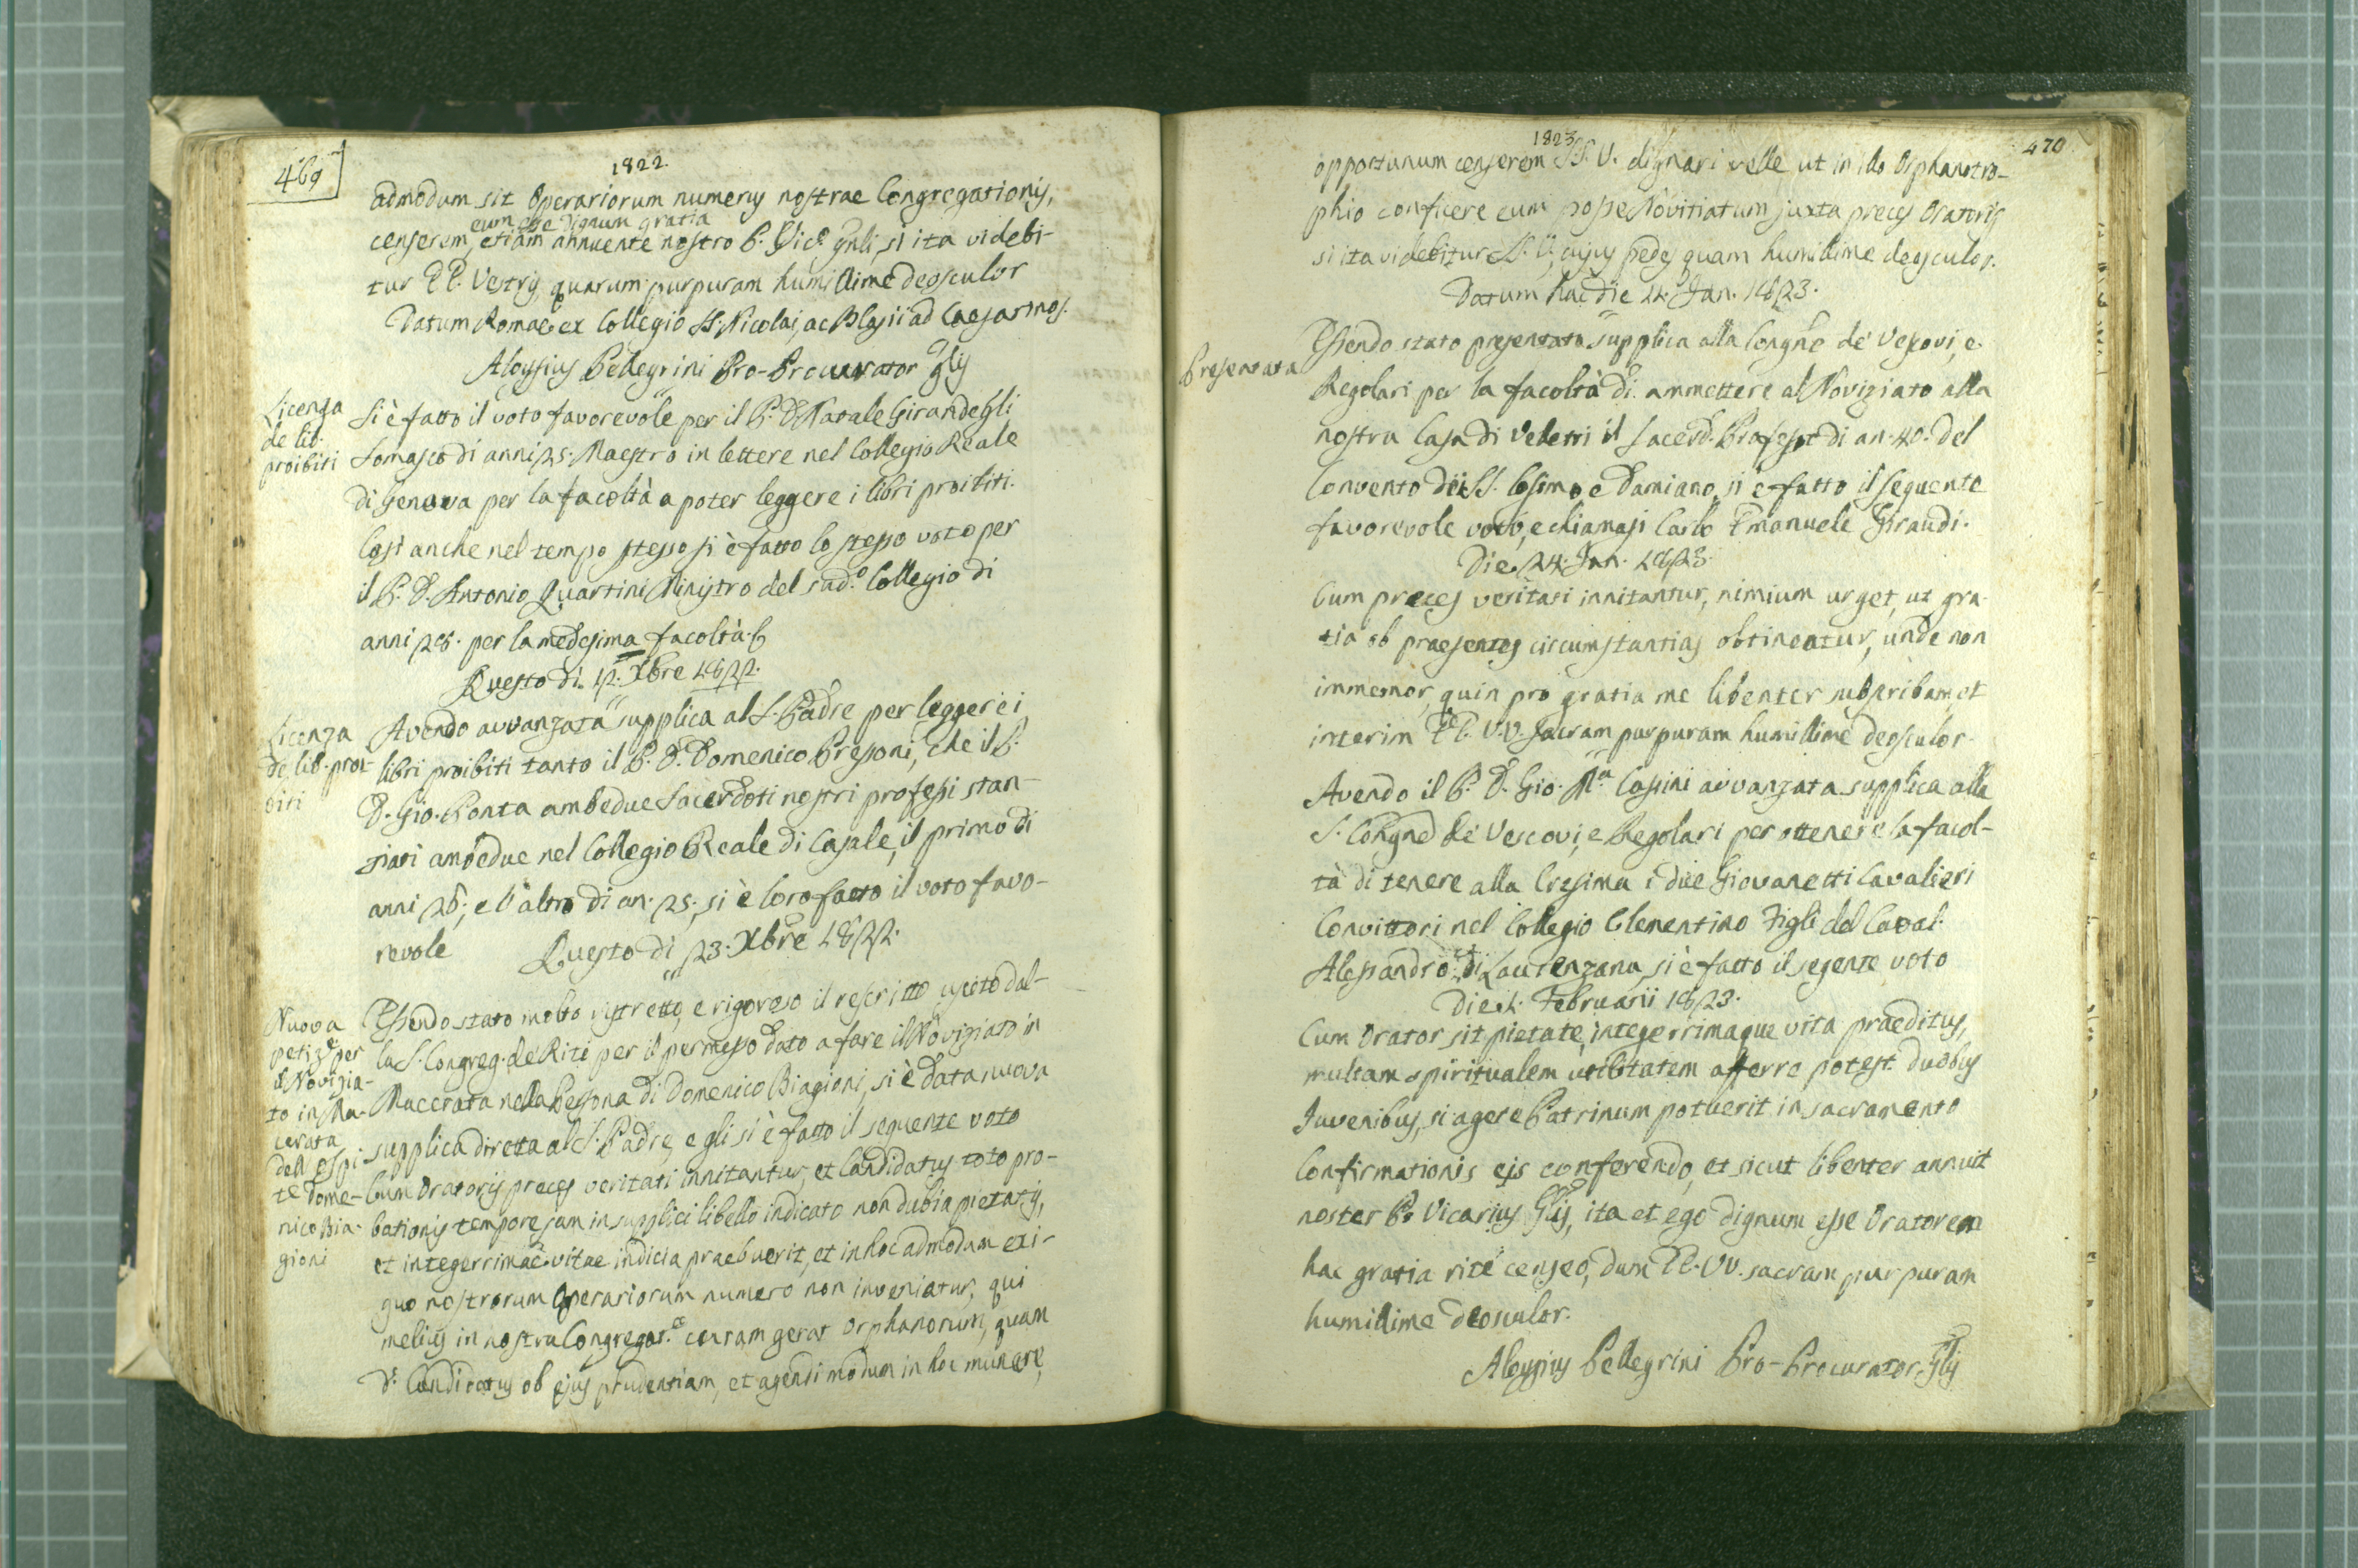 469
1822
admodum sit Operariorum numerus nostrae Congregationis,
eum esse dignum gratia
censerem, etiam annuente nostro P. Vic.º gnli, si ita videbi-
tur EE. Vestris, quarum purpuram humillime deosculor
Datum Romae ex Collegio SS. Nicolai, ac Blasii ad Caesarinos.
Aloysius Pellegrini Pro-Procurator Glis
Licenza
de lib.
proibiti
Si è fatto il voto favorevole per il P. D. Natale Girandegli
Somasco di anni 25. Maestro in lettere nel Collegio Reale
di Genova per la facoltà a poter leggere i libri proibiti.
Così anche nel tempo stesso si è fatto lo stesso voto per
il P. D. Antonio Quartini Ministro del sad.º Collegio di
anni 28. per la medesima facoltà
Questo di 12. Xbre 1822.
Licenza
de lib. proi-
biti
Avendo avvanzata supplica al S. Padre per leggere i
libri proibiti tanto il P. D. Domenico Pressoni, che il P.
D. Gio. Ponta ambedue Sacerdoti nostri professi stan-
ziati ambedue nel Collegio Reale di Casale, il primo di
anni 26; e l'altro di an. 25., si è loro fatto il voto favo-
revole Questo dì 23. Xbre 1822.
Nuova
petiz.e per
il Novizia-
to in Ma-
cerata
dell'ospi-
te Dome-
nico Bia-
gioni
Essendo stato molto ristretto, e rigoroso il rescritto uscito dal-
la S. Congreg. de' Riti per il permesso dato a fare il Noviziato in
Macerata nella Persona di Domenico Biagioni, si è data nuova
supplica diretta al S. Padre, e gli si è fatto il seguente voto
Cum Oratoris preces veritati innitantur, et Candidatus toto pro-
bationis tempore jam in supplici libello indicato non dubia pietatis,
et integerrimae vitae indicia praebuerit, et in hoc admodum exi-
guo nostrorum Operariorum numero non inveniatur, qui
melius in nostra Congregat.e curam gerat orphanorum, quam
d.º Candidatus ob ejus prudentiam, et agendi modum in hoc munere,
470
1823
opportunum censerem S. V. dignari velle, ut in illo Orphanotro-
phio conficere eum posse Novitiatum juxta preces Oratoris
si ita videbitur S. V., cujus pedes quam humillime deosculor.
Datum hac die 24. Jan. 1823.
Presentata
Essendo stato presentata supplica alla Congne de' Vescovi, e
Regolari per la facoltà di ammettere al Noviziato alla
nostra Casa di Veletri il Sacerd. Professo di an. 40. del
Convento dei SS. Cosimo e Damiano, si è fatto il seguente
favorevole voto, e chiamasi Carlo Emanuele Giraudi.
Die 24. Jan. 1823.
Cum preces veritati innitantur, nimium urget, ut gra-
tia ob praesentes circumstantias obtineatur, unde non
immemor, quin pro gratia me libenter subscribam, et
interim EE. V.V. Sacram purpuram humillime deosculor.
Avendo il P. D. Gio. M.a Cassini avvanzata supplica alla
S. Congne de' Vescovi, e Regolari per ottenere la facol-
tà di tenere alla Cresima i due Giovanetti Cavalieri
Convittori nel Collegio Clementino Figli del Caval.
Alessandro di Laurenzana, si è fatto il segente voto
Die 1. Februarii 1823.
Cum Orator sit pietate, integerrimaque vita praeditus,
multam spiritualem utilitatem afferre potest duobus
Juvenibus, si agere Patrinum potuerit in sacramento
Confirmationis eis conferendo, et sicut libenter annuit
noster P. Vicarius Glis, ita et ego dignum esse Oratorem
hac gratia rite censeo, dum EE. VV. sacram purpuram
humillime deosculor.
Aloysius Pellegrini Pro-Procurator Glis